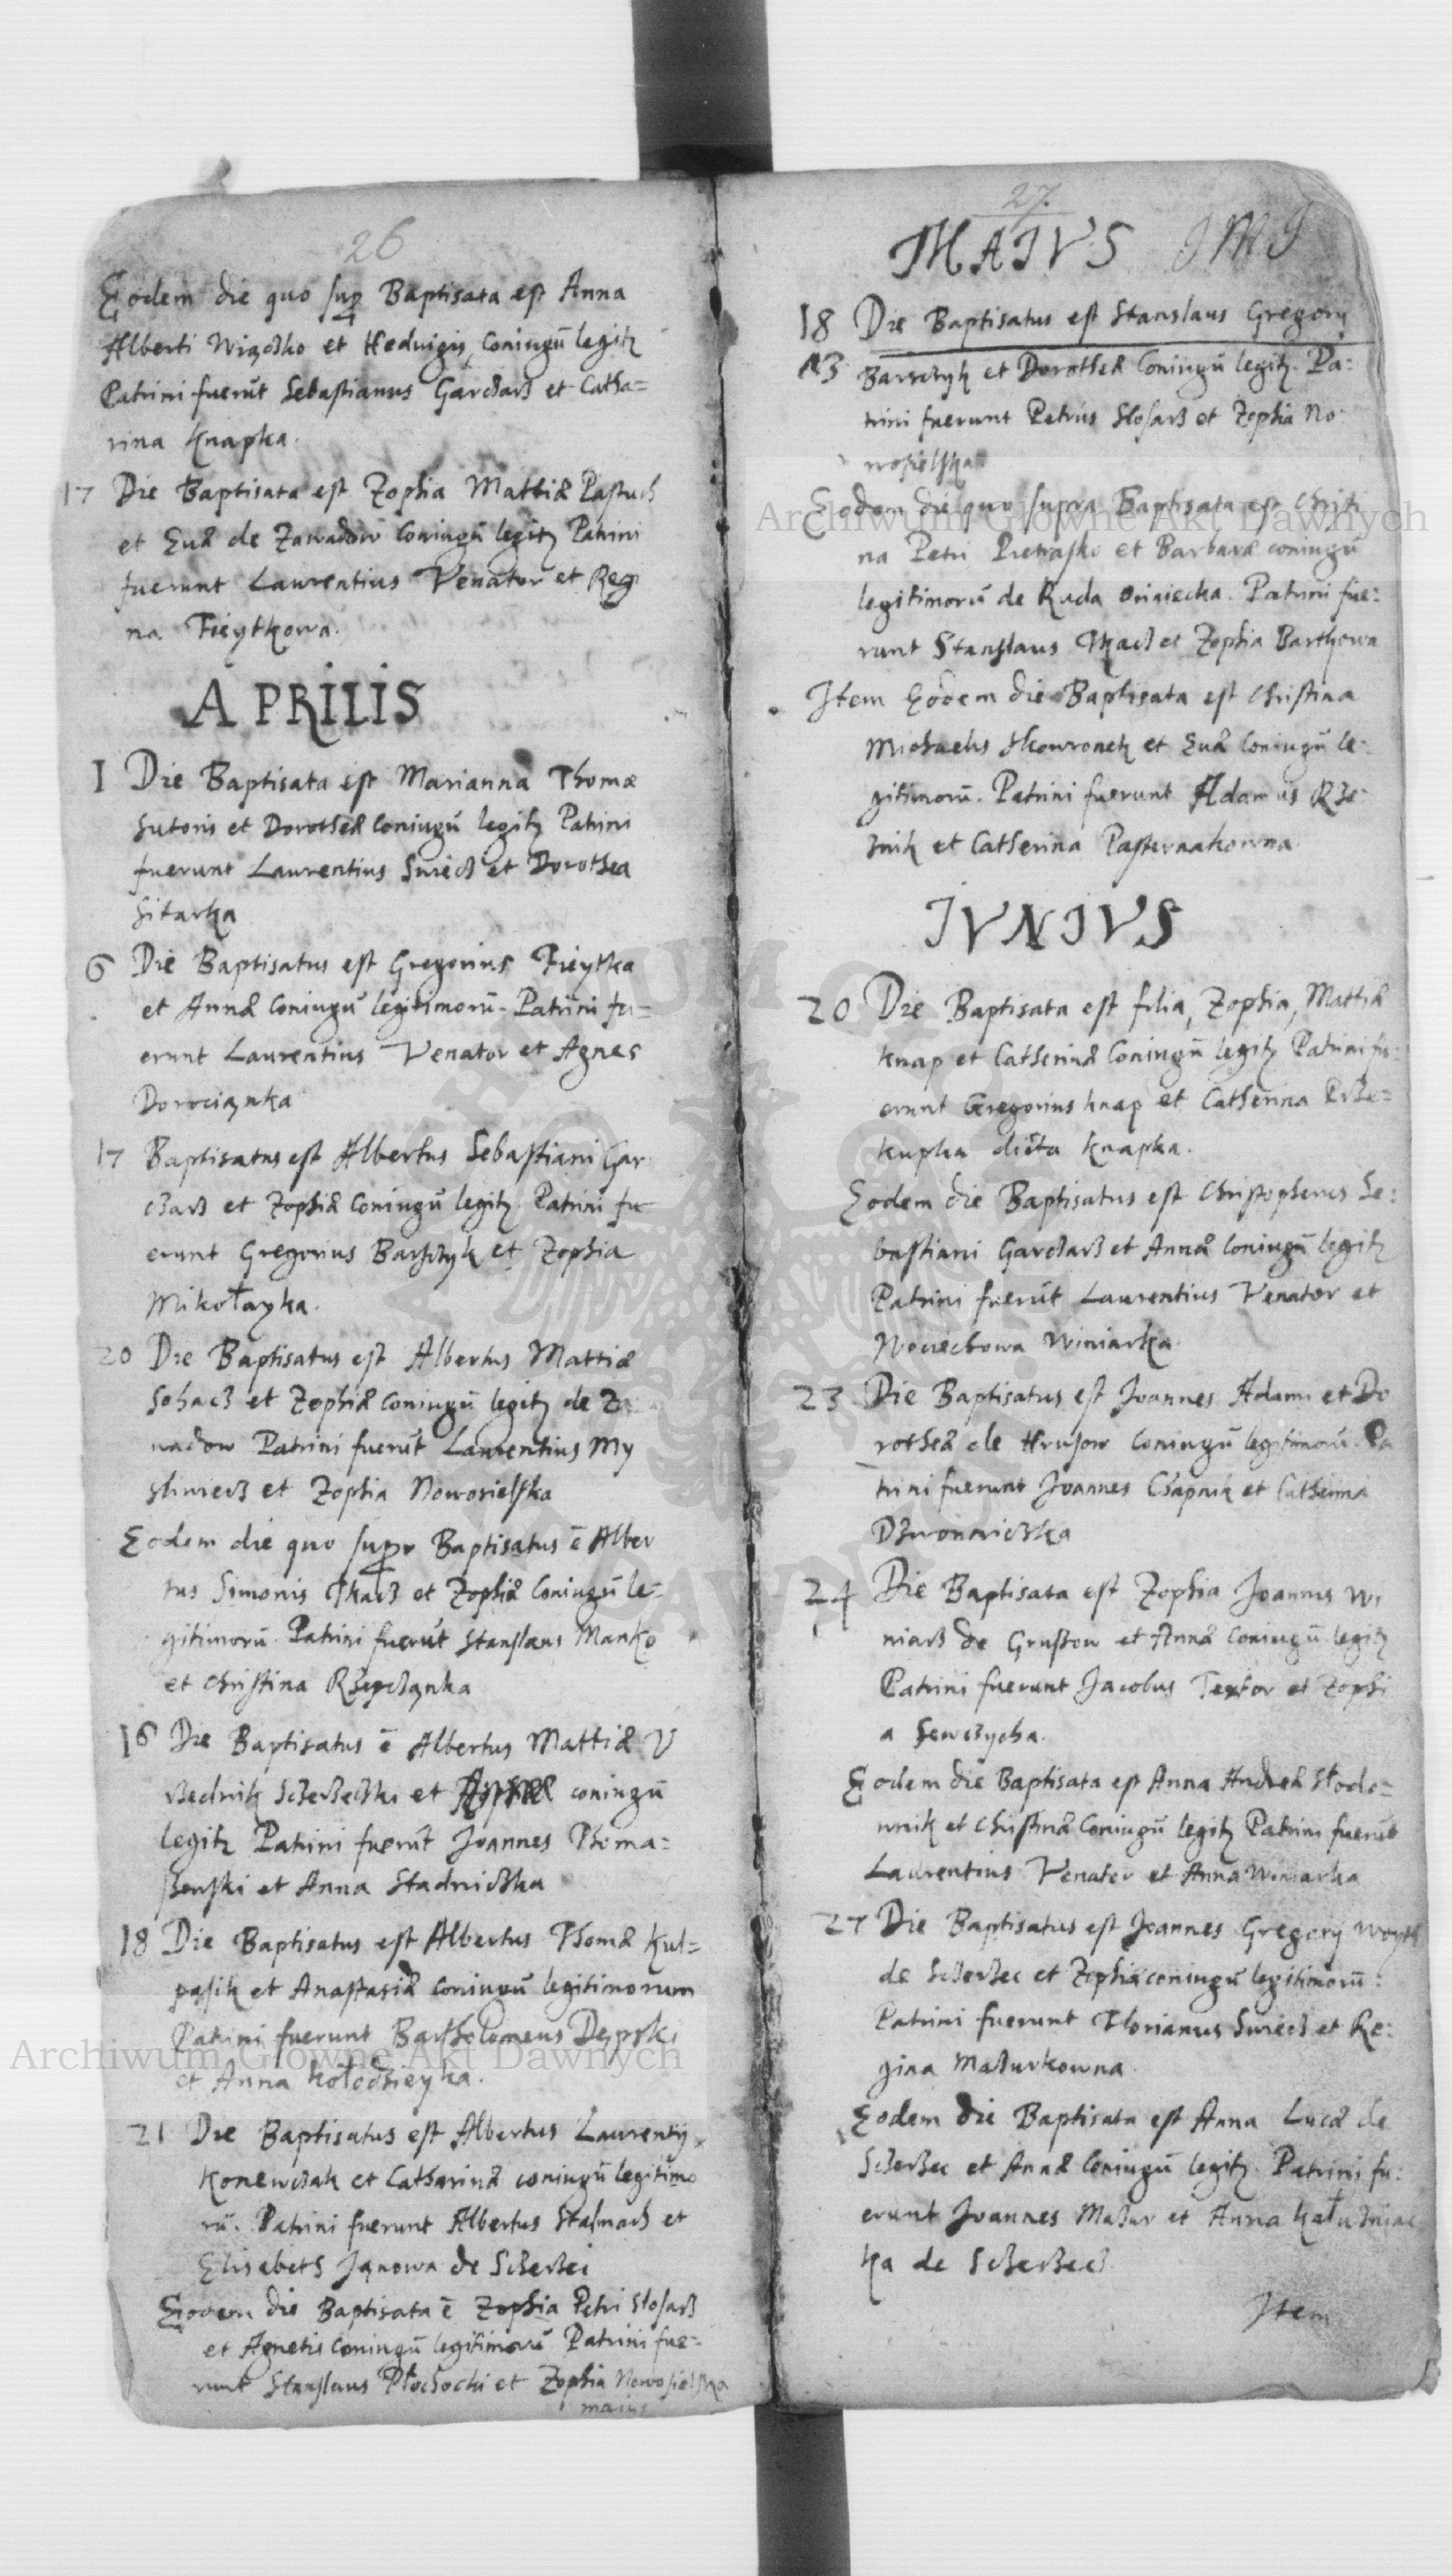 26
Eodem die quo sup Baptisata est Anna
Alberti et Hedvigis Coniugū legitz
Patrini fuerūt Sebastianus Garczarz et Catha=
rina Knapka.
17 Die Baptisata est Zophia Matthiæ Pastuch
et Euæ de Zawadow Coniugū legitz Patrini
fuerunt Laurentius Venator et Regi
na Fieytkowa.
APRILIS
1 Die Baptisata est Marianna Thomæ
Sutoris et Dorotheæ Coniugū legitz Patrini
fuerunt Laurentius Swiecz et Dorothea
Sitarka
6 Die Baptisatus est Gregorius Fieytka
et Annæ Coniugū legitimorū. Patrini fu=
erunt Laurentius Venator et Agnes
Dorocianka
17 Baptisatus est Albertus Sebastiani Gar
czarz et Zophiæ Coniugū legitz. Patrini fu
erunt Gregorius Barszczyk et Zophia
Mikołayka.
20 Die Baptisatus est Albertus Matthiæ
Sohacz et Zophiæ Coniugū legitz de Za
wadow Patrini fuerūt Laurentius My
sliwiecz et Zophia Nowosielska
Eodem die quo supr Baptisatus ē Alber
tus Simonis Tkacz et Zophiæ Coniugū le=
gitimorū. Patrini fuerūt Stanslaus Manko
et Christina
16 Die Baptisatus ē Albertus Matthiæ V
rzednik et coniugū
legitz Patrini fuerūt Joannes Thoma=
szewski et Anna Stadniczka
18 Die Baptisatus est Albertus Thomæ Kul=
pasik et Anastasiæ Coniugū legitimorum
Patrini fuerunt Bartholomeus Dępski
et Anna Kołodzieyka.
21 Die Baptisatus est Albertus Laurentij
Konewczak et Catharinæ coniugū legitimo
rū. Patrini fuerunt Albertus Stalmach et
Elisabeth Janowa de Sczerzei
Eodem die Baptisata ē Zophia Petri Slosarz
et Agnetis Coniugū legitimorū Patrini fue=
runt Stanslaus Płochocki et Zophia Nowosielska
maius
27.
MAIVS IMJ
18 Die Baptisatus est Stanslaus Gregorij
23 Barszczyk et Dorotheæ Coniugū legitz. Pa=
trini fuerunt Petrus Slosarz et Zophia No
wosielska
Eodem die quo supra Baptisata est Christi
na Petri Pietrasko et Barbaræ coniugū
legitimorū de Ruda. Patrini fue=
runt Stanslaus Tkacz et Zophia Barthowa
Item Eodem die Baptisata est Christina
Michaelis Skowronek et Euæ Coniugū le=
gitimorū. Patrini fuerunt Adamus Rze=
znik et Catherina Pasternakowna
IVNIVS
20 Die Baptisata est filia, Zophia, Matthiæ
Knap et Catherinæ Coniugū legitz Patrini fu=
erunt Gregorius Knap et Catherina Prze=
kupka dicta Knapka.
Eodem die Baptisatus est Christopherus Se=
bastiani Garczarz et Annæ Coniugū legitz
Patrini fuerūt Laurentius Venator et
Woiciechowa Winiarka
23 Die Baptisatus est Joannes Adami et Do
rotheæ de Hrusow Coniugū legitimorū. Pa
trini fuerunt Joannes Czapnik et Catherina
Dzwonniczka
24 Die Baptisata est Zophia Joannis Wi
niarz de et Annæ Coniugū legitz
Patrini fuerunt Jacobus Textor et Zophi
a Sewczycha.
Eodem die Baptisata est Anna Andreæ Słodo=
wnik et Christinæ Coniugū legitz Patrini fuerūt
Laurentius Venator et Anna Winiarka
27 Die Baptisatus est Joannes Gregorij Woyth
de Sczerzec et Zophiæ coniugū legitimorū:
Patrini fuerunt Florianus Swiecz et Re=
gina Mazurkowna.
Eodem die Baptisata est Anna Lucæ de
Sczerzec et Annæ Coniugū legitz. Patrini fu=
erunt Joannes Mazur et Anna Kałuzniac
ka de Sczerzecz.
Item
Archiwum Główne Akt Dawnych
Archiwum Główne Akt Dawnych